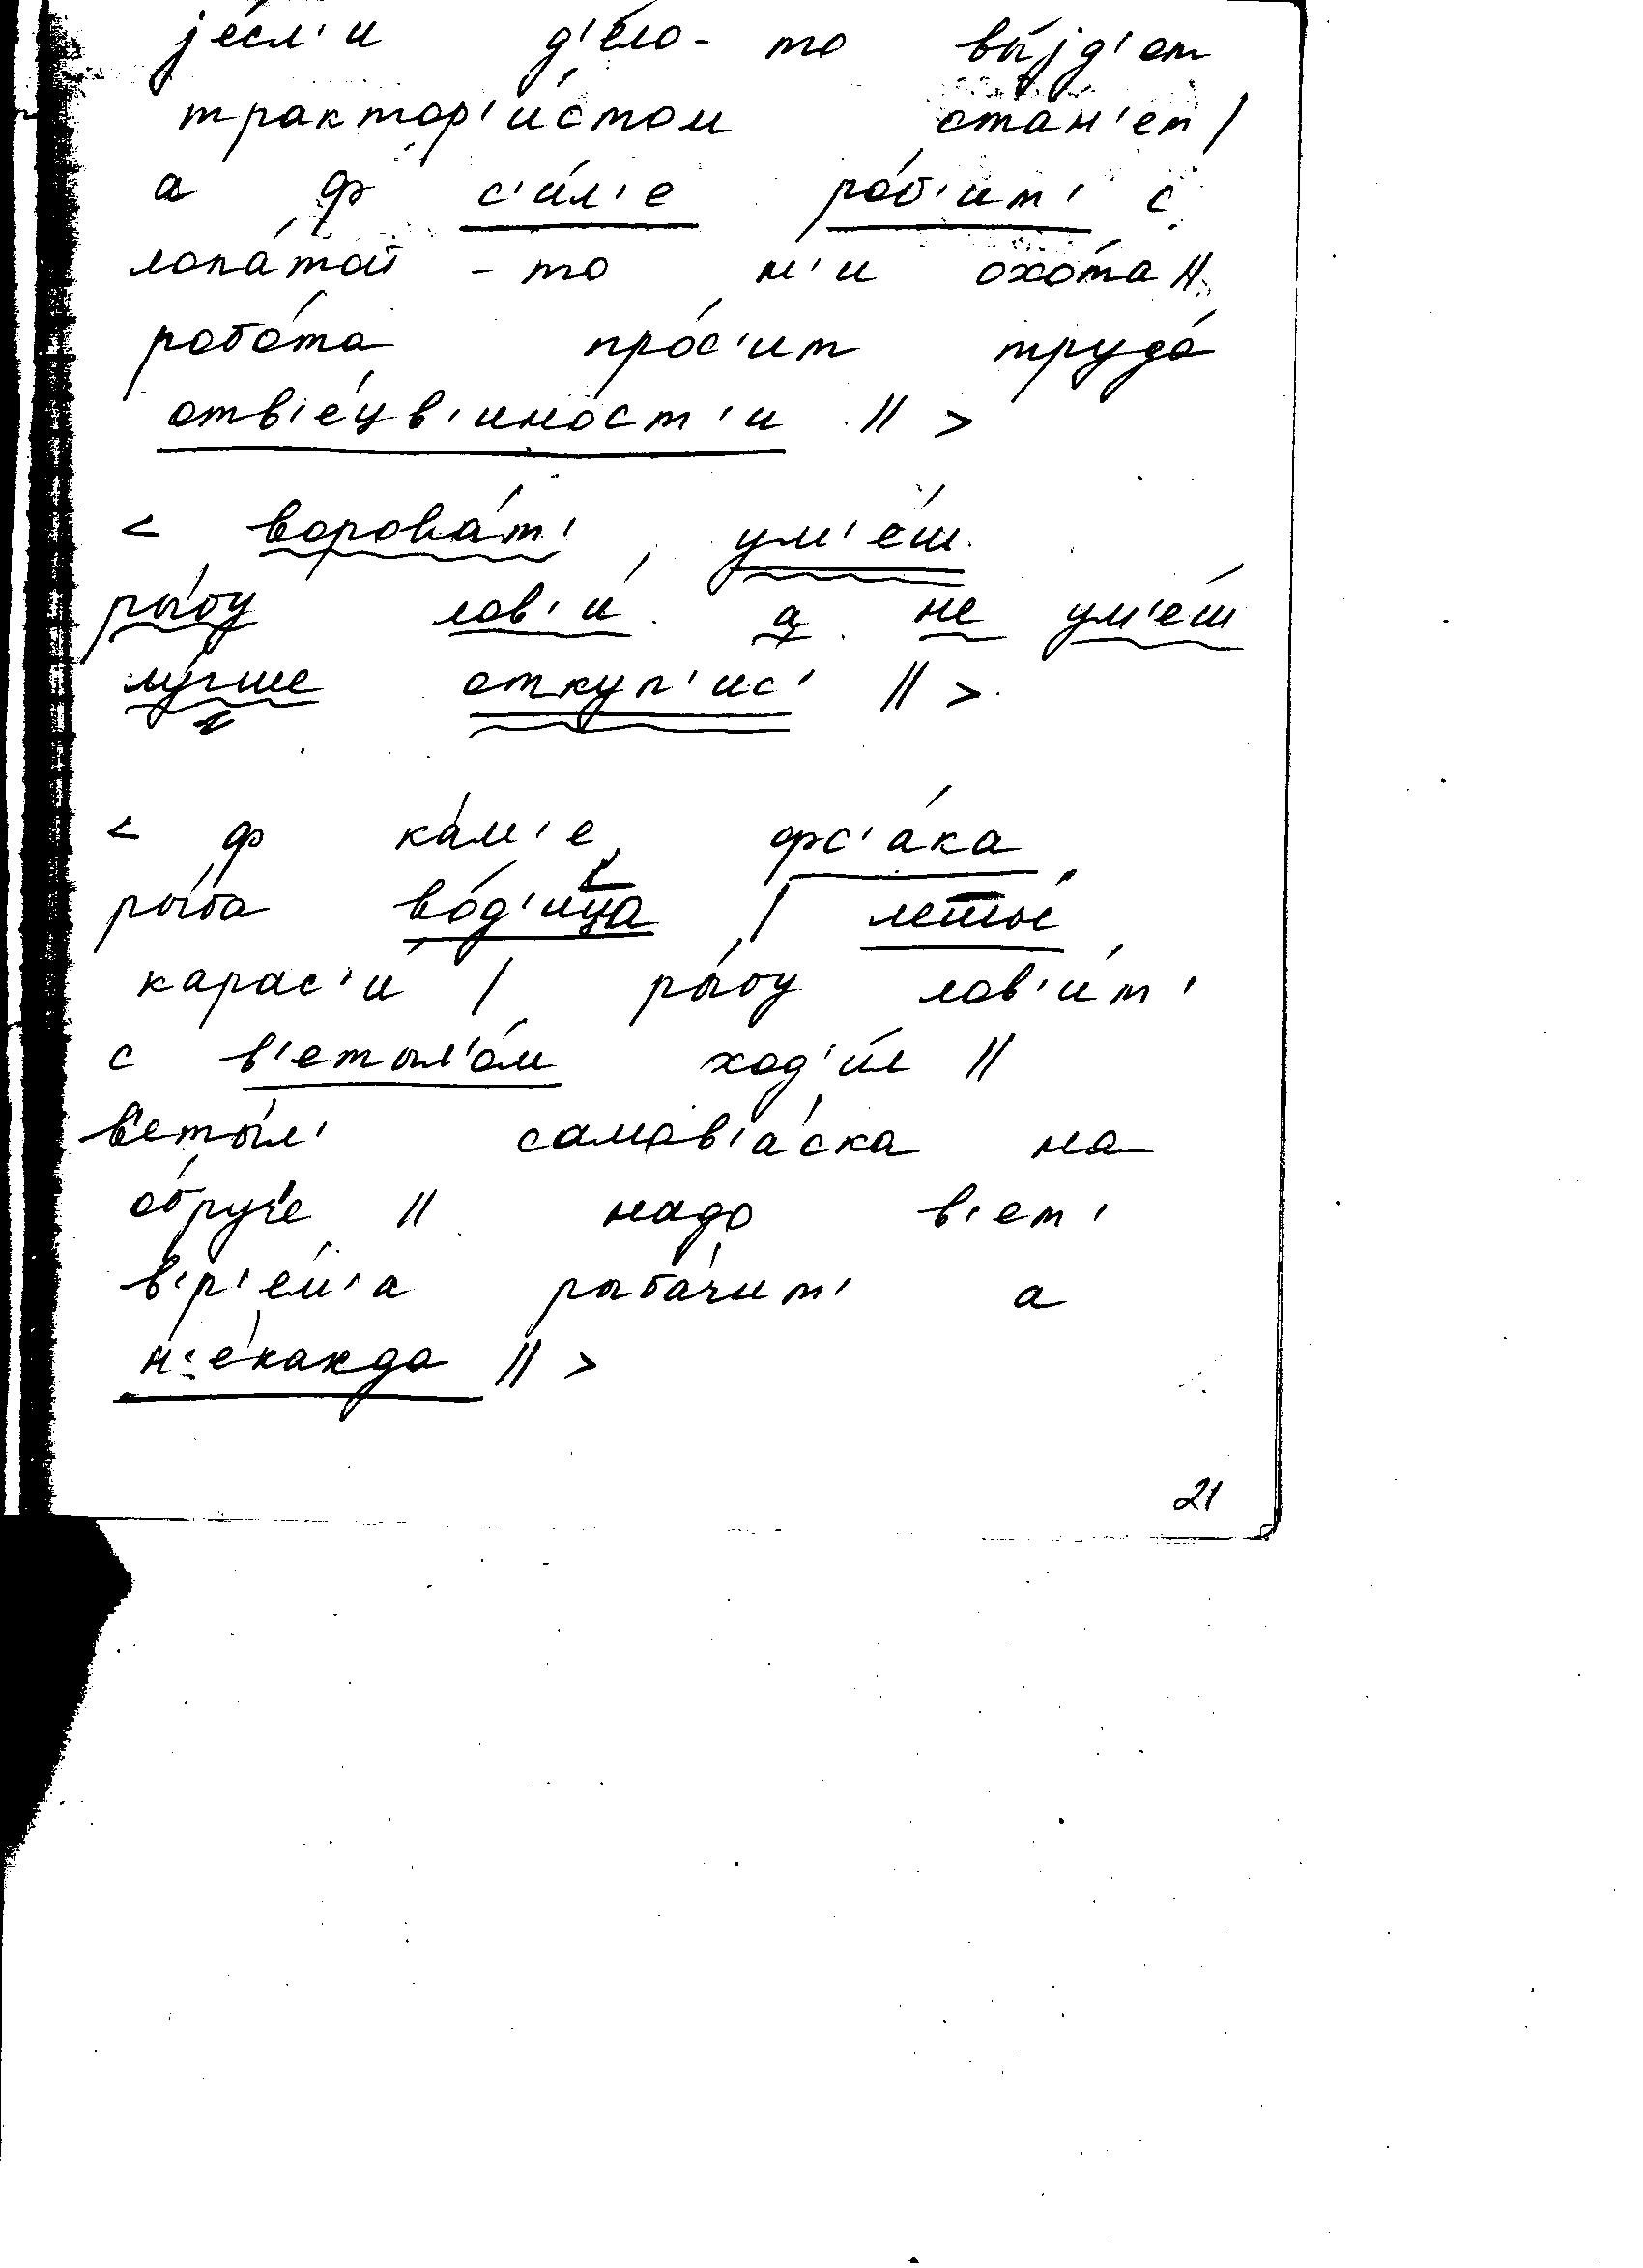 је́сл'и д'е́ло-то вы́јд'ет
трактор'и́стом стан'ет /
а ф с'и́л'е ро́б'ит' с
лопа́той -то н'и охо́та //
рабо́та про́с'ит труда́
отв'е́цв'иност'и // >
< ворова́т', ум'е́ш
ры́бу лов'и́ а не ум'е́ш
лу́чше откуп'ис' // >
< ф ка́м'е фс'а́ка
ры́ба во́д'ица /
карас'и́ / ры́бу лов'и́т'
с в'етыл'о́м ход'и́л //
ветыл' самов'а́ска на
обруче // надо в'ет'
вр'е́м'а рыба́чит' а
н'е́каκда // >
21